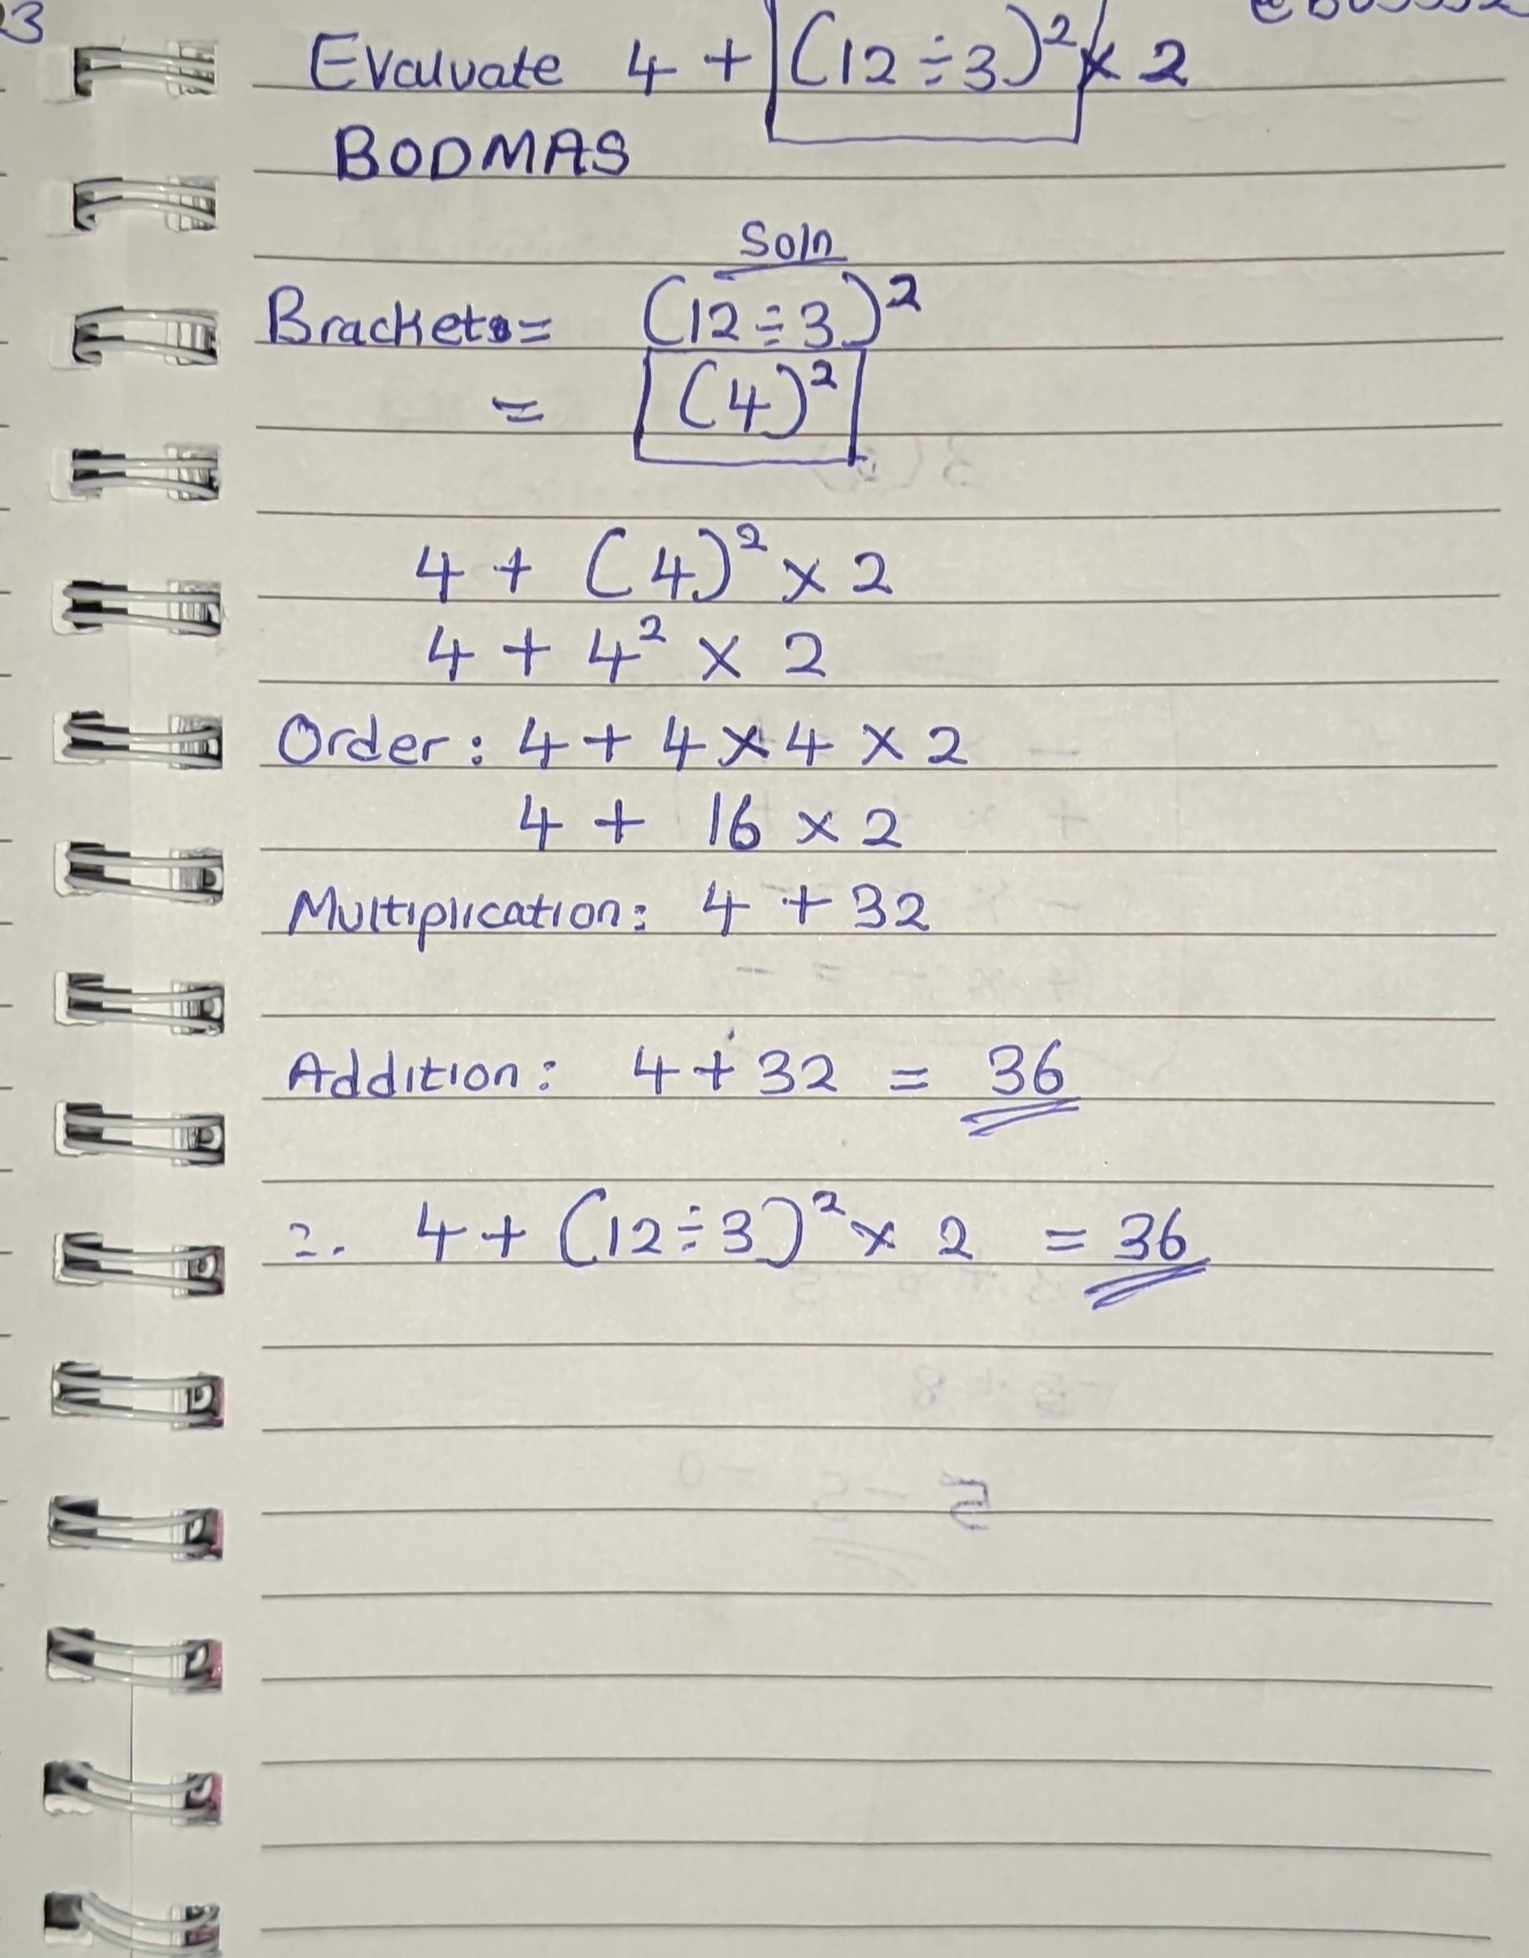 Evaluate 4 + (12 ÷ 3)² × 2
BODMAS
Soln
Brackets = (12 ÷ 3)²
= (4)²
4 + (4)² × 2
4 + 4² × 2
Order: 4 + 4 × 4 × 2
4 + 16 × 2
Multiplication: 4 + 32
Addition: 4 + 32 = 36
∴ 4 + (12 ÷ 3)² × 2 = 36